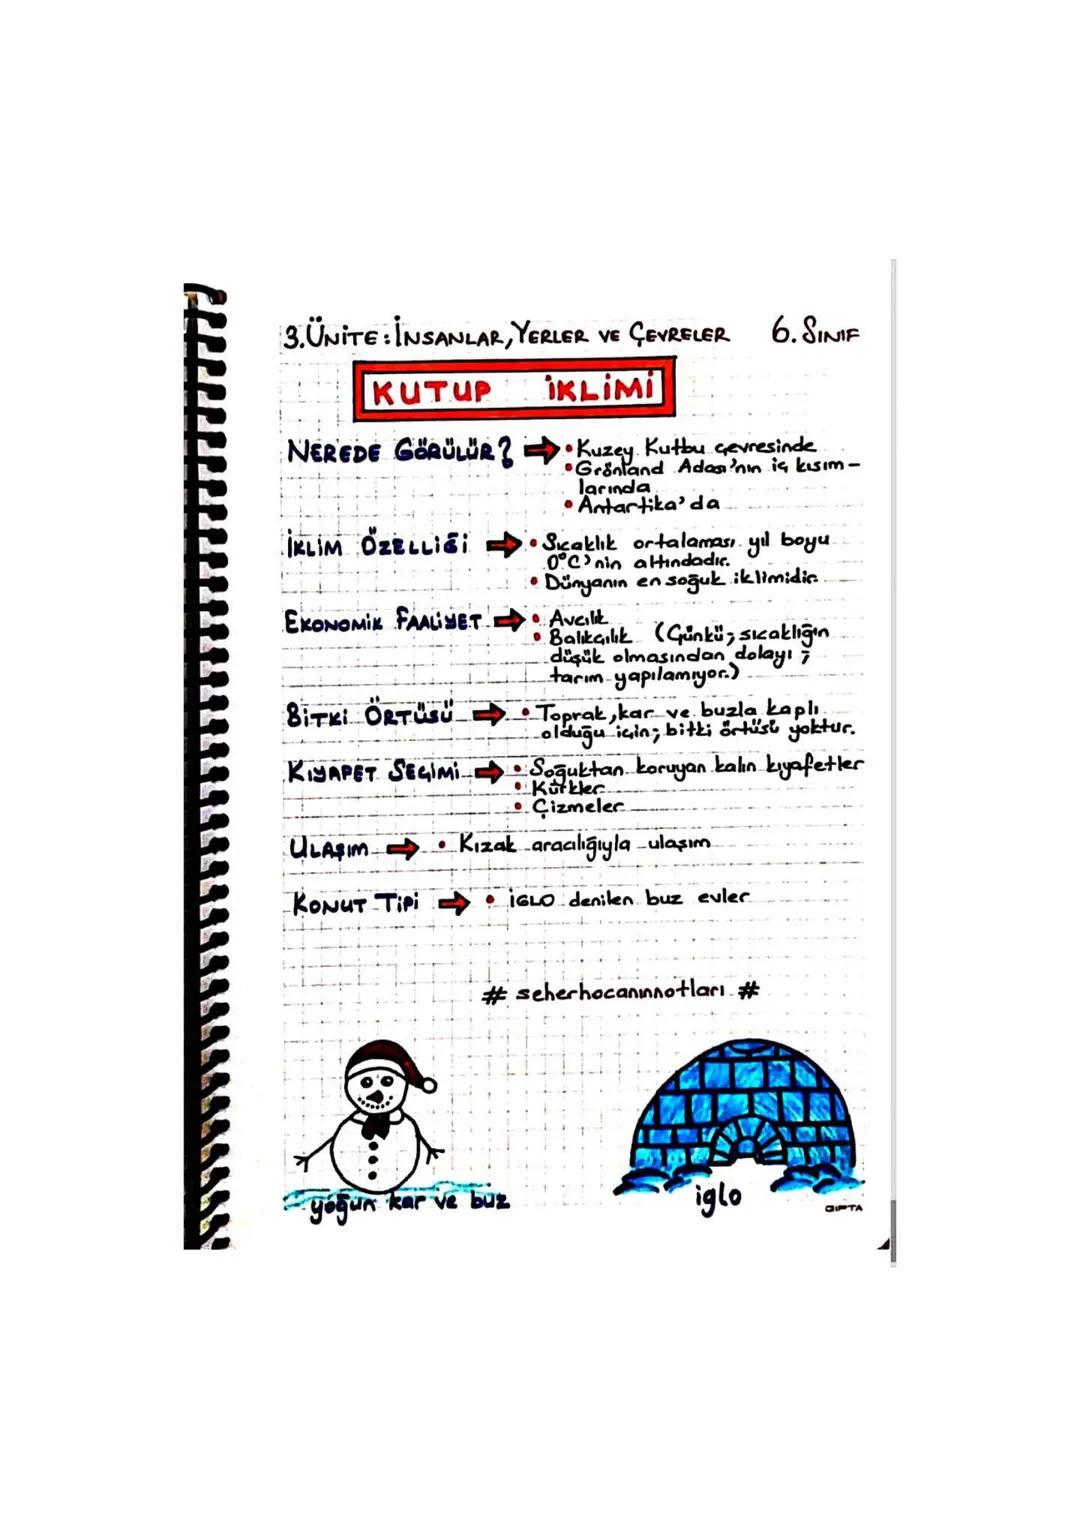 3.ÜNİTE: İNSANLAR, YERLER VE ÇEVRELER 6. SINIF
KUTUP İKLİMİ
NEREDE GÖRÜLÜR? → • Kuzey Kutbu çevresinde
• Grönland Adası'nın iç kısım-
larında
• Antartika'da
İKLİM ÖZELLİĞİ → • Sıcaklık ortalaması yıl boyu
0°C'nin altındadır.
• Dünyanın en soğuk iklimidir.
EKONOMİK FAALİYET → • Avcılık
• Balıkçılık (Çünkü; sıcaklığın
düşük olmasından dolayı ;
tarım yapılamıyor.)
BİTKİ ÖRTÜSÜ → • Toprak, kar ve buzla kaplı
olduğu için; bitki örtüsü yoktur.
KIYAFET SEÇİMİ → • Soğuktan koruyan kalın kıyafetler
• Kürkler
• Çizmeler
ULAŞIM → • Kızak aracılığıyla ulaşım
KONUT TİPİ → • İGLO denilen buz evler
# seherhocanınnotları #
yoğun kar ve buz
iglo
GIPTA